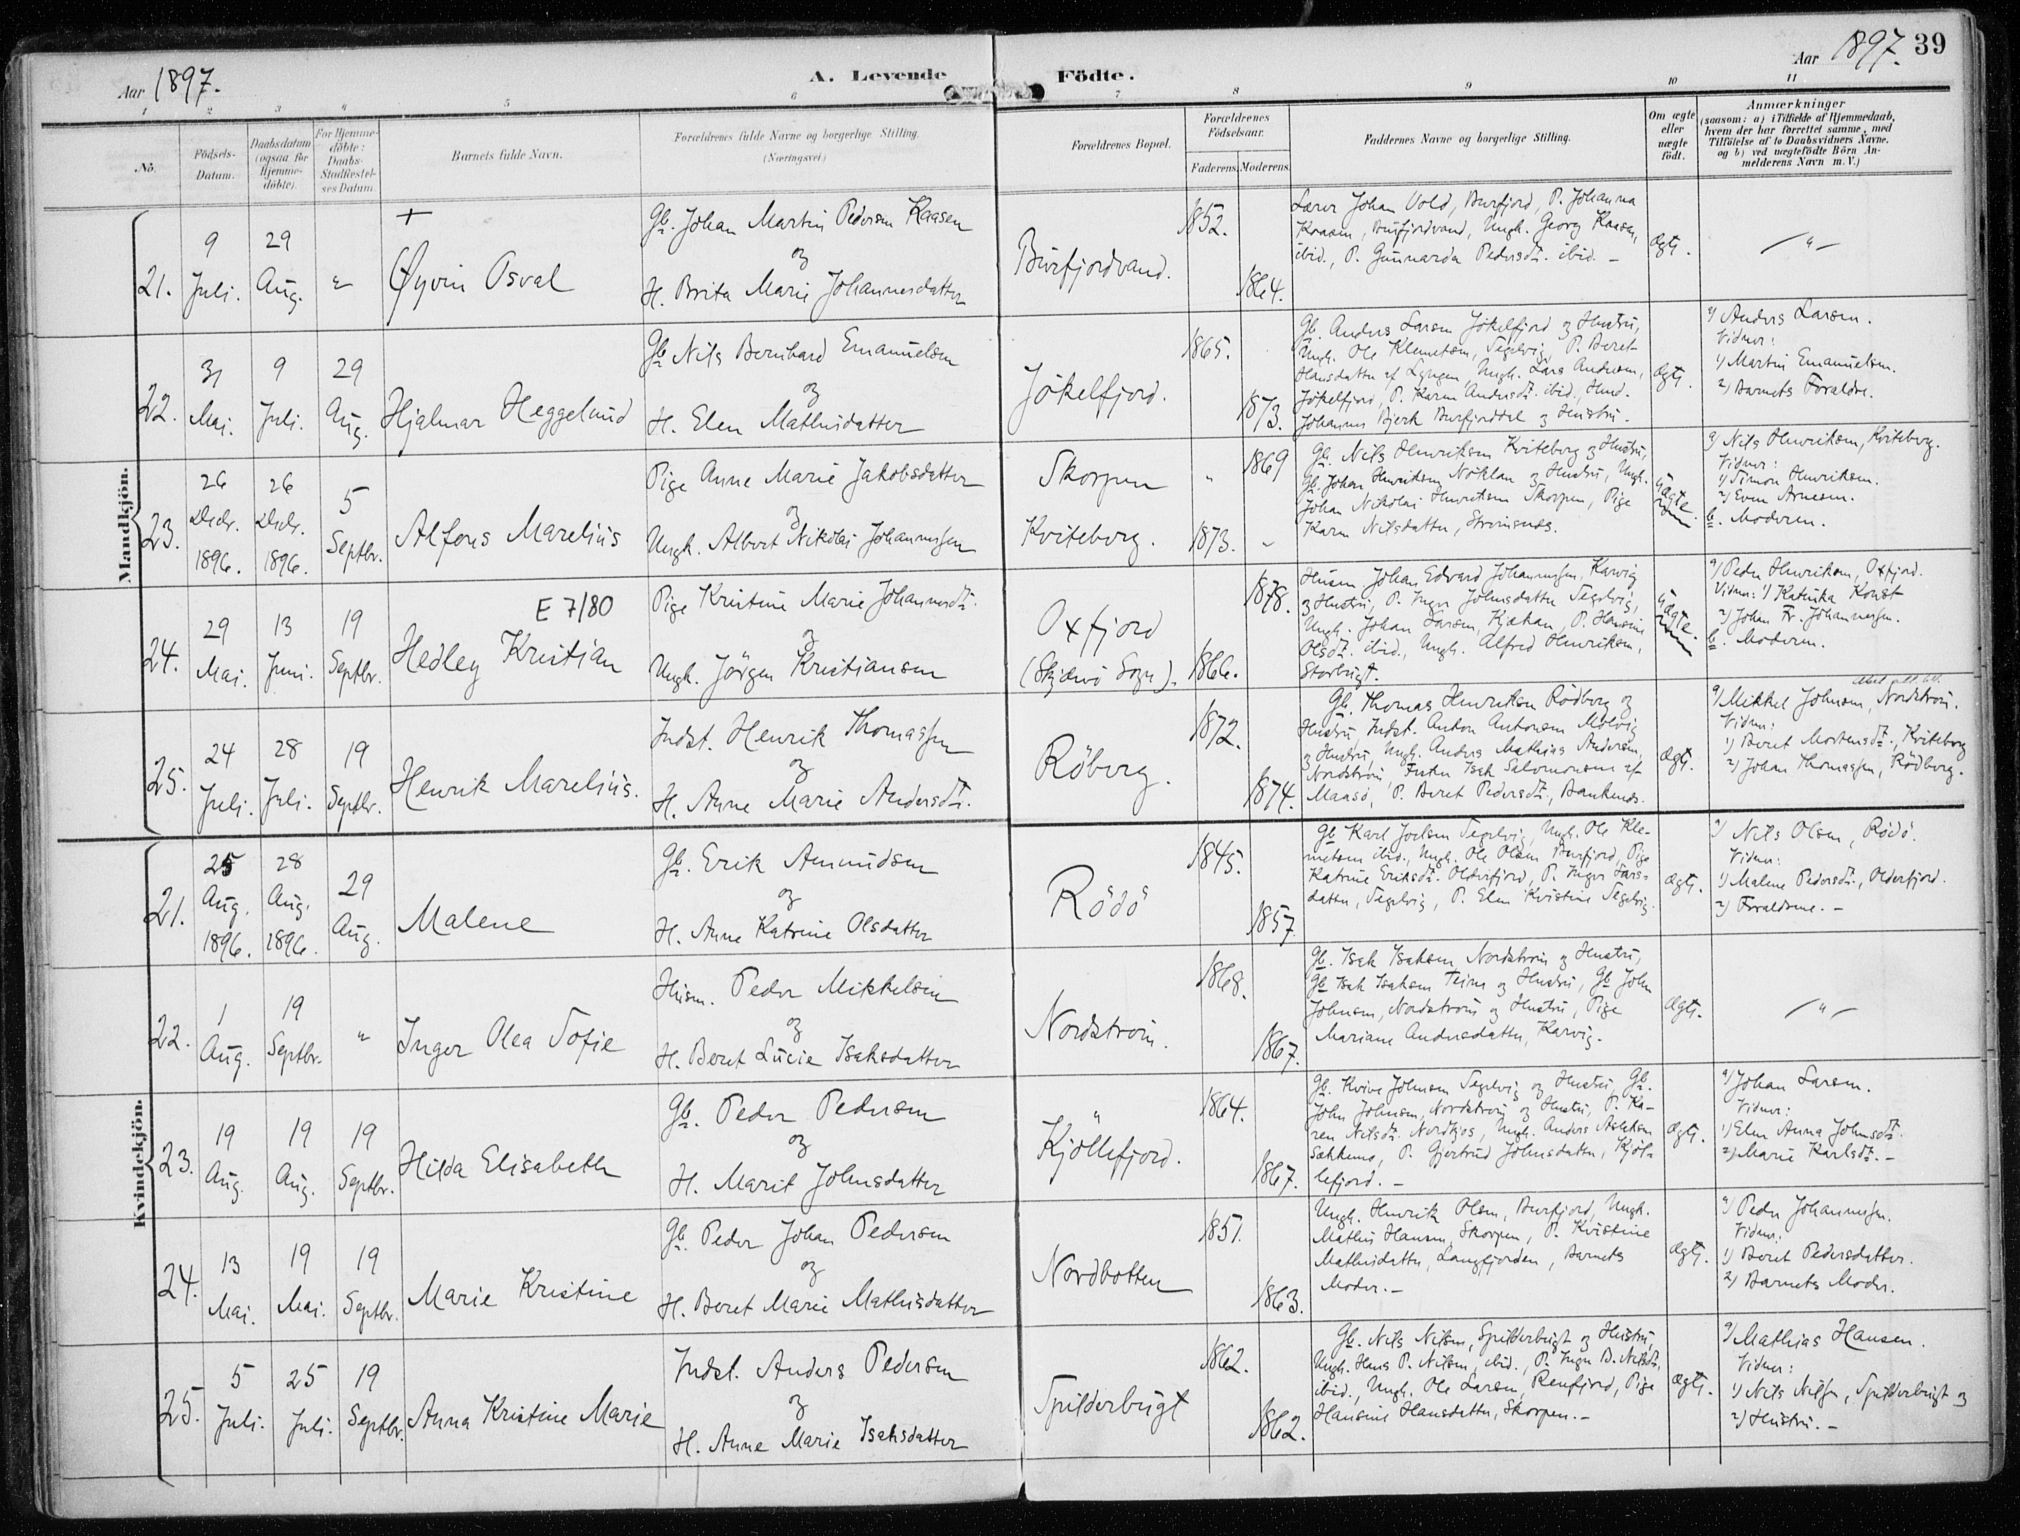 Aar 1897.
A. Levende Födte.
Aar 1897. 39
1 2 3 4 5 6 7 8 9 10 11
No.
Födsels-
Datum.
Daabsdatum
(ogsaa for
Hjemme-
döbte).
For Hjemme-
döbte:
Daabs-
Stadfæstel-
ses Datum.
Barnets fulde Navn.
Forældrenes fulde Navne og borgerlige Stilling.
(Næringsvei.)
Forældrenes Bopæl.
Forældrenes
Födselsaar.
Faderens. Moderens.
Faddernes Navne og borgerlige Stilling.
Om ægte
eller
uægte
födt.
Anmærkninger
(saasom: a) i Tilfælde af Hjemmedaab,
hvem der har forrettet samme, med
Tilföielse af to Daabsvidners Navne.
og b) ved uægtefödte Börn An-
melderens Navn m. V.)
Mandkjön.
21.
9
Juli.
29
Aug.
"
+
Øyvin Osval
Gb. Johan Martin Pedersen Kaasen
og
H. Brita Marie Johannesdatter
Burfjordvand.
1852.
1864.
Lærer Johan Vold, Burfjord, P. Johanna
Kaasen, Burfjordvand, Ungk. Georg Kaasen,
ibid., P. Gunnarda Pedersdt. ibid. –
ægte.
– " –
22.
31
Mai.
9
Juli.
29
Aug.
Hjalmar Heggelund
Gb. Nils Bernhard Emanuelsen
og
H. Elen Mathisdatter
Jökelfjord.
1865.
1873.
Gb. Anders Larsen Jökelfjord og Hustru,
Ungk. Ole Klemetsen, Segelvig, P. Beret
Hansdatter af Lyngen, Ungk. Lars Andersen,
Jökelfjord, P. Karen Andersdt. ibid.,
Johannes Bjerk Burfjorddal og Hustru.
ægte.
a) Anders Larsen.
Vidner:
1) Martin Emanuelsen.
2) Barnets Forældre.
23.
26
Decbr.
1896.
26
Decbr.
1896.
5
Septbr.
Alfons Marelius
Pige Anne Marie Jakobsdatter
og
Ungk. Albert Nikolai Johannessen
Skorpen
Kviteberg.
"
1873.
1869
"
Gb. Nils Henriksen Kviteberg og Hustru,
Gb. Johan Henriksen Noklan og Hustru, Ungk.
Johan Nikolai Henriksen Skorpen, Pige
Karen Nilsdatter, Strömsnes.
uægte.
a) Nils Henriksen, Kviteberg.
Vidner:
1) Simon Henriksen.
2) Even Arnesen.
b. Moderen.
24.
29
Mai.
13
Juni.
19
Septbr.
E 7/80
Hedley Kristian
Pige Kristine Marie Johannesdt.
og
Ungk. Jörgen Kristiansen
Oxfjord
(Skjærvö Sogn).
1866.
1878.
Husm. Johan Edvard Johannessen, Karvig
og Hustru, P. Inger Johnsdatter Segelvig,
Ungk. Johan Larsen, Kjækan, P. Hansine
Olsdt. ibid., Ungk. Alfred Henriksen,
Storbugt.
uægte.
a) Peder Henriksen, Oxfjord.
Vidner: 1) Katinka Konst
2) Johan Fr. Johannessen.
b. Moderen.
25.
24
Juli.
28
Juli.
19
Septbr.
Henrik Marelius.
Indst. Henrik Thomassen
og
H. Anne Marie Andersdt.
Röberg.
1872.
1874.
Gb. Thomas Henriksen Rödberg og
Hustru, Indst. Anton Antonsen Molvig
og Hustru, Ungk. Anders Mathias Andersen,
Nordström, Isak Salomonsen af
Maasö, P. Beret Pedersdt., Bankenes.
ægte.
a) Mikkel Johnsen, Nordström.
Vidner:
1) Beret Mortensdt., Kviteberg
2) Johan Thomassen, Rödberg.
Kvindekjön.
21.
25
Aug.
1896.
28
Aug.
1896.
29
Aug.
Malene
Gb. Erik Amundsen
og
H. Anne Katrine Olsdatter
Rödö
1845.
1857.
Gb. Karl Joelsen Segelvig, Ungk. Ole Kle-
metsen ibid., Ungk. Ole Olsen Burfjord, Pige
Katrine Eriksdt. Olderfjord, P. Inger Lars-
datter, Segelvig, P. Elen Kristine Segelvig.
ægte.
a) Nils Olsen, Rödö.
Vidner:
1) Malene Pedersdt., Olderfjord.
2) Forældrene. –
22.
1
Aug.
19
Septbr.
"
Inger Olea Sofie
Husm. Peder Mikkelsen
og
H. Beret Lucie Isaksdatter
Nordström.
1868.
1867.
Gb. Isak Isaksen Nordström og Hustru,
Gb. Isak Isaksen Teines og Hustru, Gb. John
Johnsen, Nordström og Hustru, Pige
Mariane Andersdatter, Karvig.
ægte.
– " –
23.
19
Aug.
19
Aug.
19
Septbr.
Hilda Elisabeth
Gb. Peder Pedersen
og
H. Marit Johnsdatter
Kjöllefjord.
1864.
1867.
Gb. Johnsen Segelvig og Hustru, Gb.
John Johnsen, Nordström og Hustru, P. Ka-
ren Nilsdt. Nordkjos, Ungk. Anders Aslaksen
Sækkemo, P. Gjertrud Johnsdatter, Kjöl-
lefjord. –
ægte.
a) Johan Larsen.
Vidner:
1) Elen Anna Johnsdt.
2) Marie Karlsdt. –
24.
13
Mai.
19
Mai.
19
Septbr.
Marie Kristine
Gb. Peder Johan Pedersen
og
H. Beret Marie Mathisdatter
Nordbotten
1851.
1863.
Ungk. Henrik Olsen, Burfjord, Ungk.
Mathis Hansen, Skorpen, P. Kristine
Mathisdatter, Langfjorden, Barnets
Moder. –
ægte.
a) Peder Johannessen.
Vidner:
1) Beret Pedersdatter.
2) Barnets Moder.
25.
5
Juli.
25
Juli.
19
Septbr.
Anna Kristine Marie
Indst. Anders Pedersen
og
H. Anne Marie Isaksdatter
Spilderbugt
1862.
1862.
Gb. Nils Nilsen, Spilderbugt og Hustru,
Ungk. Hans P. Nilsen, ibid., P. Inger B. Nilsdt.
ibid., Ungk. Ole Larsen, Reinfjord, Pige
Hansine Hansdatter, Skorpen. –
ægte.
a) Mathias Hansen.
Vidner:
1) Nils Nilsen, Spilderbugt og
2) Hustru. –